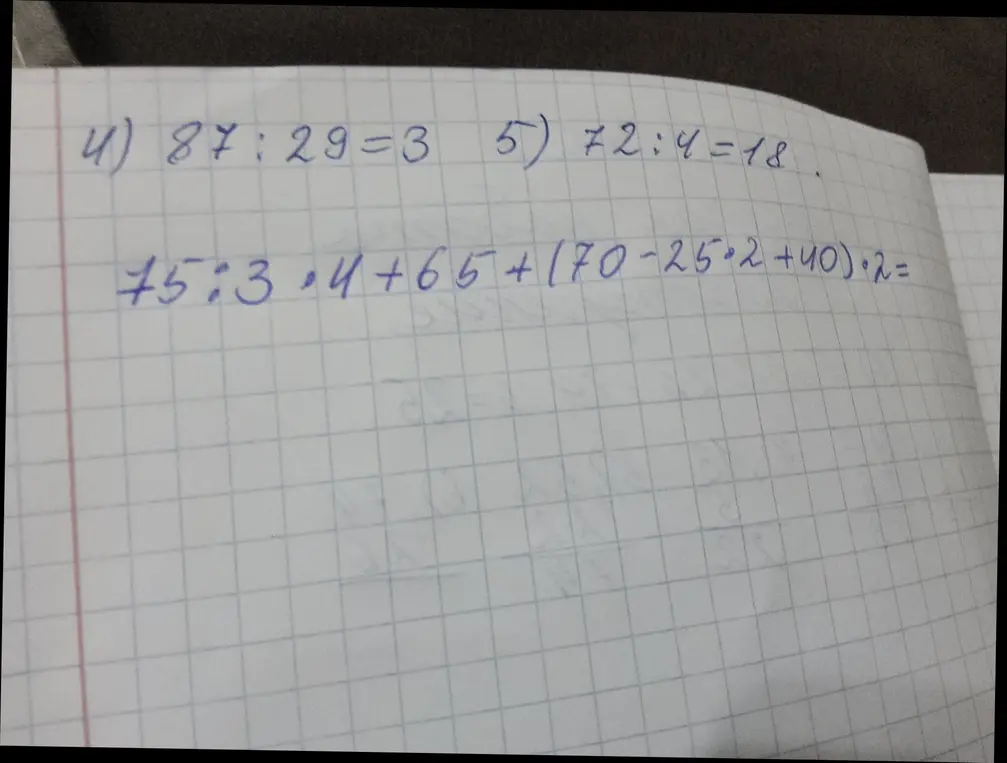 4) 87 : 29 = 3 5) 72 : 4 = 18 .
75 : 3 · 4 + 65 + (70 - 25 · 2 + 40) · 2 =